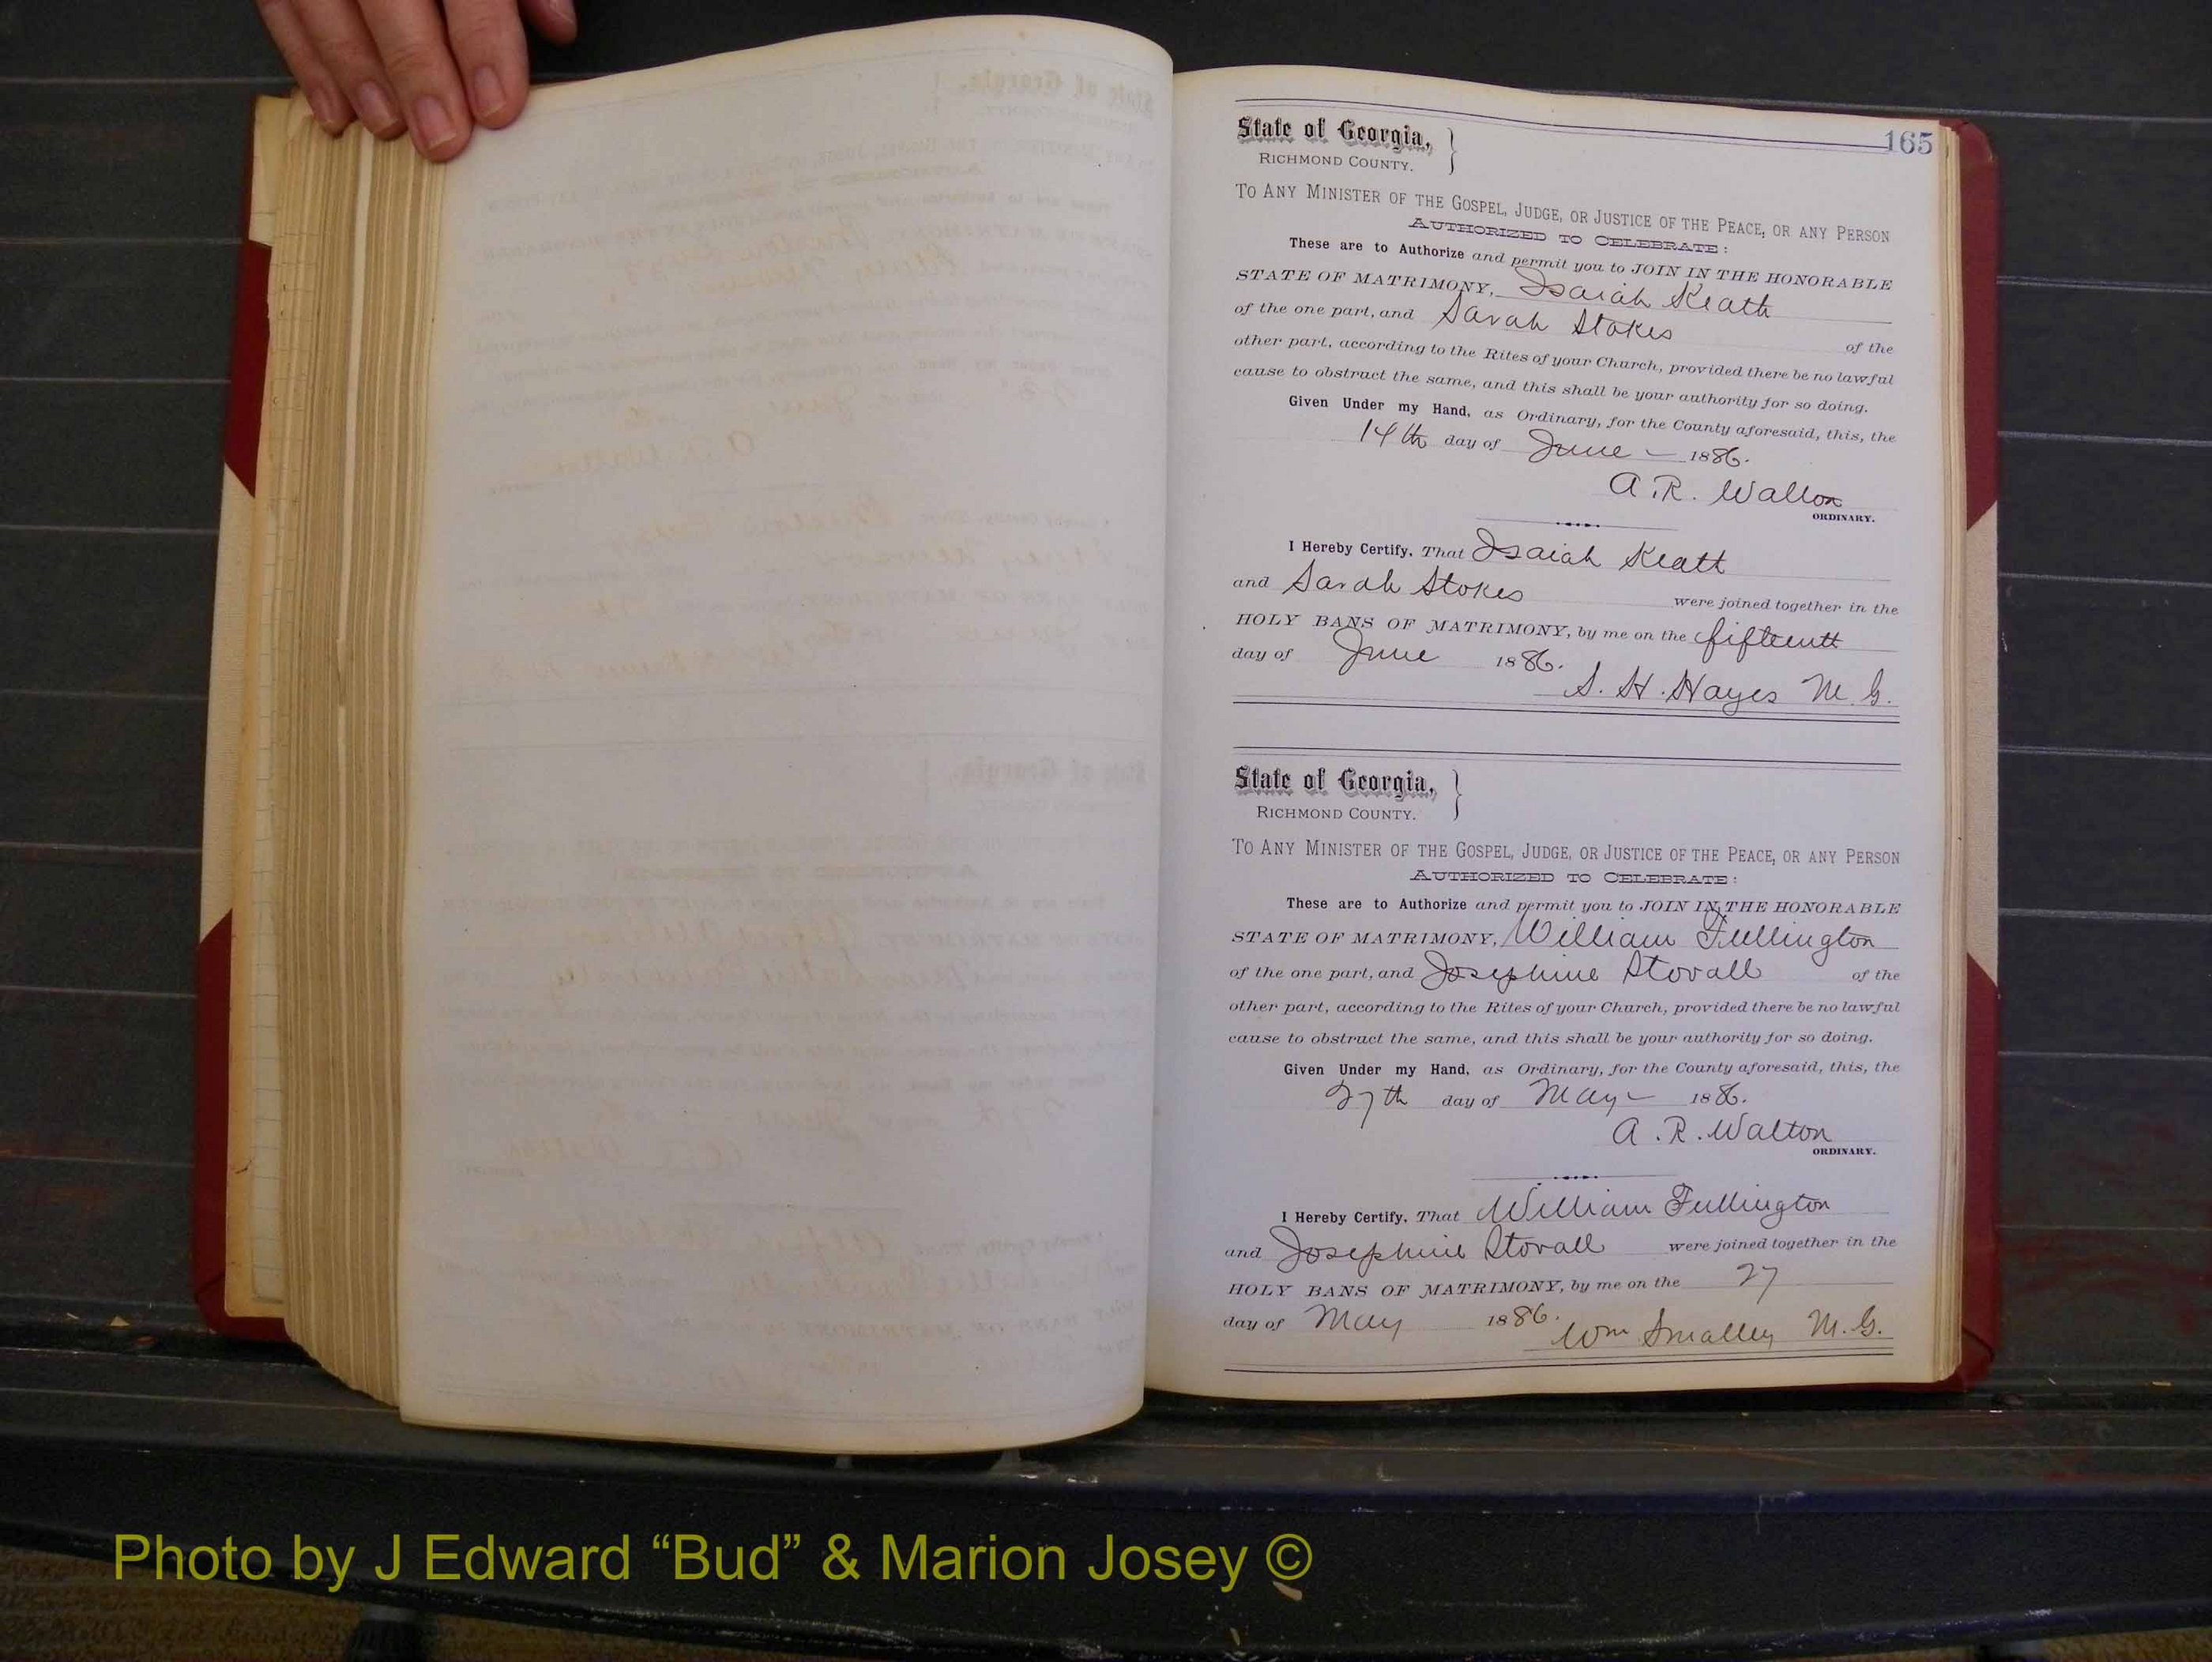 165
State of Georgia, }
RICHMOND COUNTY.
TO ANY MINISTER OF THE GOSPEL, JUDGE, OR JUSTICE OF THE PEACE, OR ANY PERSON
AUTHORIZED TO CELEBRATE:
These are to Authorize and permit you to JOIN IN THE HONORABLE
STATE OF MATRIMONY, Isaiah Keath
of the one part, and Sarah Stokes of the
other part, according to the Rites of your Church, provided there be no lawful
cause to obstruct the same, and this shall be your authority for so doing.
Given Under my Hand, as Ordinary, for the County aforesaid, this, the
14th day of June 1886.
A. R. Walton
ORDINARY.
I Hereby Certify, That Isaiah Keatt
and Sarah Stokes were joined together in the
HOLY BANS OF MATRIMONY, by me on the fifteenth
day of June 1886.
S. H. Hayes M. G.
State of Georgia, }
RICHMOND COUNTY.
TO ANY MINISTER OF THE GOSPEL, JUDGE, OR JUSTICE OF THE PEACE, OR ANY PERSON
AUTHORIZED TO CELEBRATE:
These are to Authorize and permit you to JOIN IN THE HONORABLE
STATE OF MATRIMONY, William Fullington
of the one part, and Josephine Stovall of the
other part, according to the Rites of your Church, provided there be no lawful
cause to obstruct the same, and this shall be your authority for so doing.
Given Under my Hand, as Ordinary, for the County aforesaid, this, the
27th day of May 1886.
A. R. Walton
ORDINARY.
I Hereby Certify, That William Fullington
and Josephine Stovall were joined together in the
HOLY BANS OF MATRIMONY, by me on the 27
day of May 1886.
Wm Smalley M. G.
Photo by J Edward “Bud” & Marion Josey ©